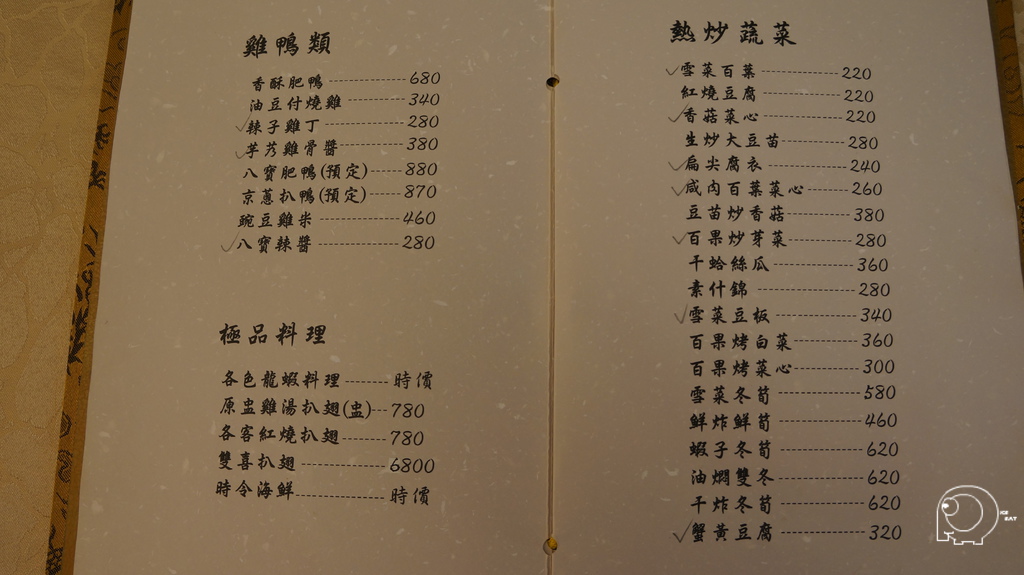 雞鴨類
香酥肥鴨 680
油豆付燒雞 340
辣子雞丁 280
芋艿雞骨醬 380
八寶肥鴨(預定) 880
京蔥扒鴨(預定) 870
豌豆雞米 460
八寶辣醬 280
極品料理
各色龍蝦料理 時價
原盅雞湯扒翅(盅) 780
各客紅燒扒翅 780
雙喜扒翅 6800
時令海鮮 時價
熱炒蔬菜
雪菜百葉 220
紅燒豆腐 220
香菇菜心 220
生炒大豆苗 280
扁尖腐衣 240
咸肉百葉菜心 260
豆苗炒香菇 380
百果炒芽菜 280
干蛤絲瓜 360
素什錦 280
雪菜豆板 340
百果烤白菜 360
百果烤菜心 300
雪菜冬筍 580
鮮炸鮮筍 460
蝦子冬筍 620
油燜雙冬 620
干炸冬筍 620
蟹黃豆腐 320
ICE
EAT